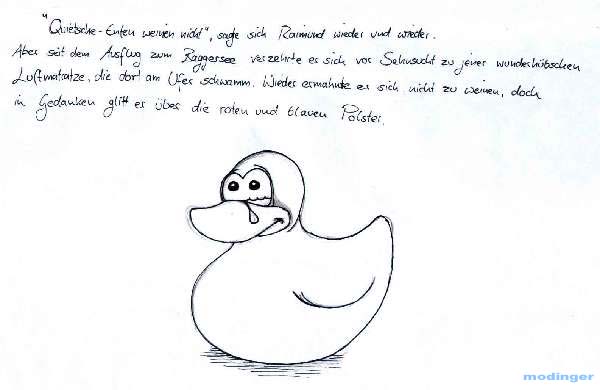 "Quietsche-Enten weinen nicht", sagte sich Raimund wieder und wieder.
Aber seit dem Ausflug zum Baggersee verzehrte er sich vor Sehnsucht zu jener wunderhübschen
Luftmatratze, die dort am Ufer schwamm. Wieder ermahnte er sich nicht zu weinen, doch
in Gedanken glitt er über die roten und blauen Polster.
modinger